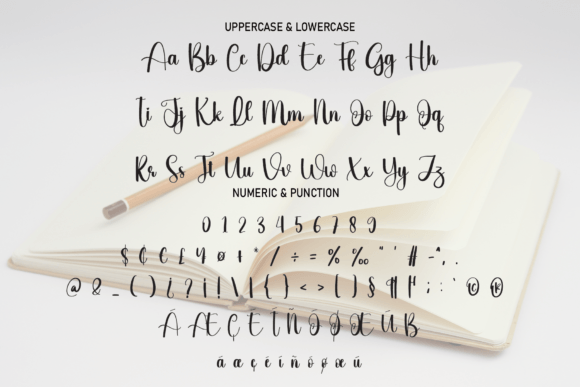 UPPERCASE & LOWERCASE
Aa Bb Cc Dd Ee Ff Gg Hh
Ii Jj Kk Ll Mm Nn Oo Pp Qq
Rr Ss Tt Uu Vv Ww Xx Yy Zz
NUMERIC & PUNCTION
0 1 2 3 4 5 6 7 8 9
$ ₵ € £ ¥ ø ł * / ÷ = % ‰ " ' # - ^ , .
@ & _ ( ) ¿ ? ¡ ! \ | { } < > [ ] § ¶ ; : ` © ®
Á Æ Ç É Í Ñ Ó Ø Œ Ú ß
á æ ç é í ñ ó ø œ ú